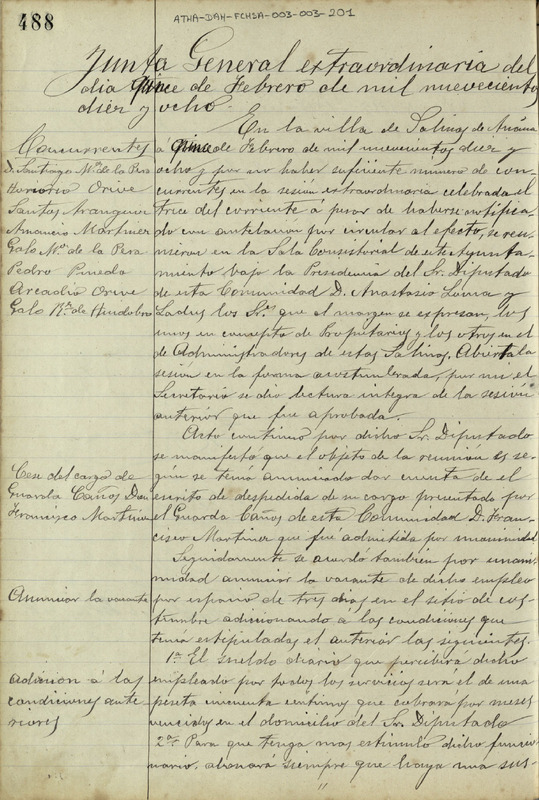 488
ATHA-DAH-FCHSA-003-003-201
Junta General extraordinaria del
dia quince de Febrero de mil novecientos
diez y ocho
Concurrentes
D. Santiago Mª. de la Pera
Honorio Orive
Santos Aranguiz
Amancio Martinez
Galo Mª. de la Pera
Pedro Pineda
Arcadio Orive
Galo Rz. de
En la villa de Salinas de Añana
á quince de Febrero de mil novecientos diez y
ocho y por no haber suficiente numero de con-
currentes en la sesion extraordinaria celebrada el
trece del corriente á pesar de haberse notifica-
do con antelacion por circular al efecto, se reu-
nieron en la Sala Consistorial de este Ayunta-
miento bajo la Presidencia del Sr. Diputado
de esta Comunidad D. Anastasio Loma y
los Sres. que al margen se espresan, los
unos en concepto de Propietarios y los otros en el
de Administradores de estas Salinas. Abierta la
sesión en la forma acostumbrada, por mi el
Secretario se dio lectura integra de la sesión
anterior que fue aprobada.
Acto continuo por dicho Sr. Diputado
se manifestó que el objeto de la reunion es se-
gún se tenia anunciado dar cuenta de el
escrito de despedida de su cargo presentado por
el Guarda Caños de esta Comunidad D. Fran-
cisco Martinez que fue admitida por unanimidad
Cese del cargo de
Guarda Caños Don
Francisco Martinez
Seguidamente se acordó también por unani-
midad anunciar la vacante de dicho empleo
por espacio de tres dias, en el sitio de cos-
tumbre adicionando a las condiciones que
tenia estipuladas el anterior las siguientes.
Anunciar la vacante
1ª. El sueldo diario que percibirá dicho
empleado por todos los servicios será el de una
peseta cincuenta centimos que cobrará por meses
vencidos en el domicilio del Sr. Diputado
Adicion á las
condiciones ante-
riores
2ª. Para que tenga mas estimulo dicho funcio-
nario, abonará siempre que haya una sus-